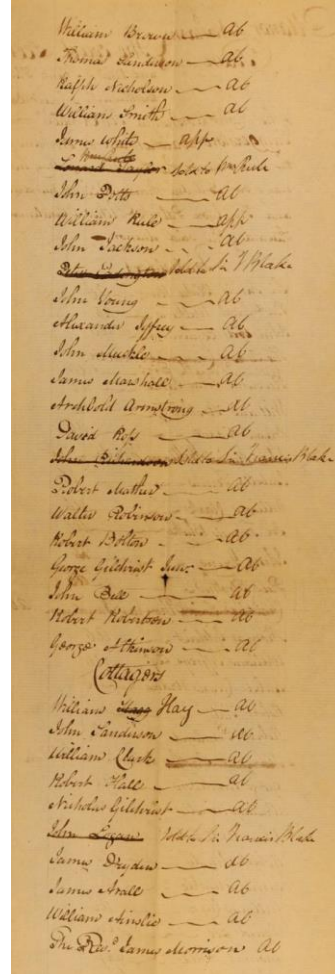 William Brown — ab
Thomas Sanderson — ab
Ralph Nicholson — ab
William Smith — ab
James White — app
Taylor sold to Wm Rule
John Potts — ab
William Rule — app
John Jackson — ab
Peter sold to Sir F Blake
John Young — ab
Alexander Jeffrey — ab
John Muckle — ab
James Marshall — ab
Archbold Armstrong — ab
David Ross — ab
John Richardson sold to Sir Francis Blake
Robert Mather — ab
Walter Robinson — ab
Robert Bolton — ab
George Gilchrist Junr — ab
John Bell — ab
Robert Robertson — ab
George Atkinson — ab
Cottagers
William Hay — ab
John Sanderson — ab
William Clark — ab
Robert Hall — ab
Nicholas Gilchrist — ab
John Logan sold to Sir Francis Blake
James Dryden — ab
James — ab
William Ainslie — ab
The Revd. James Morrison ab